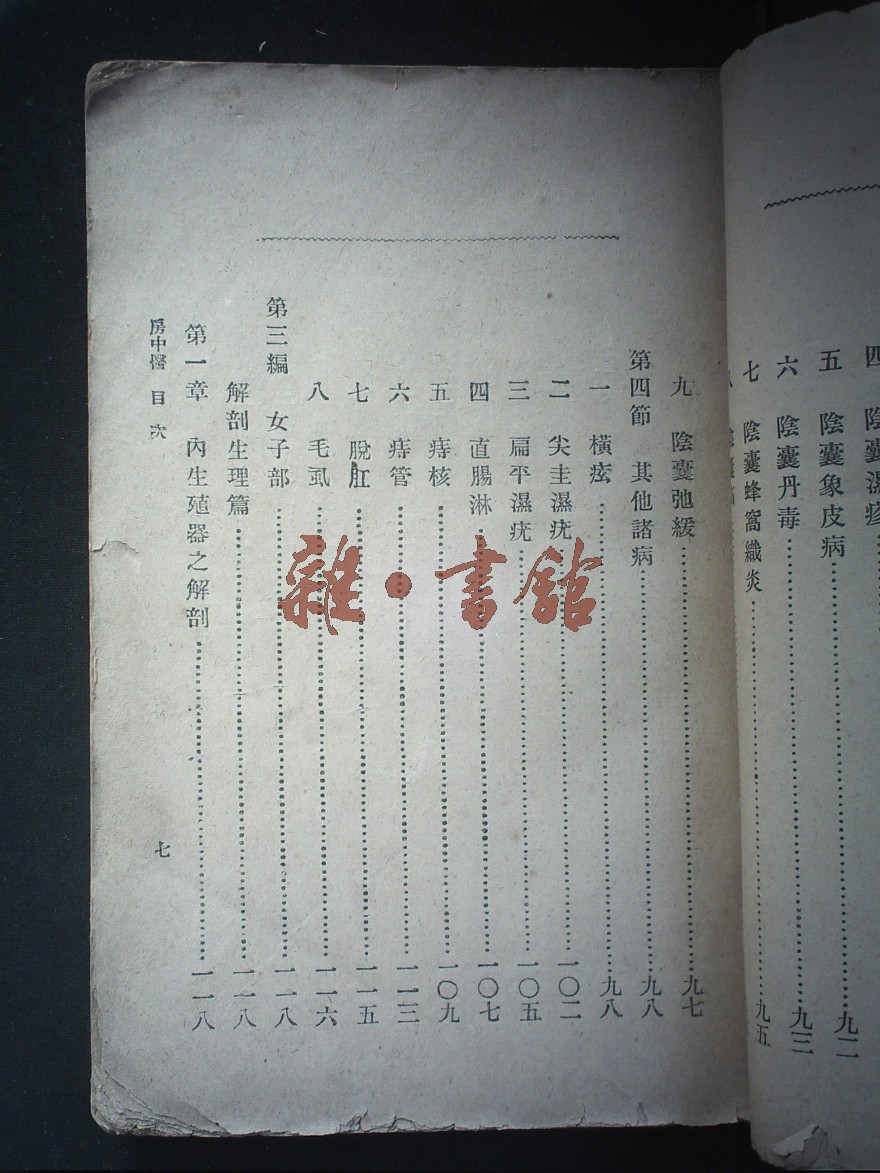 四 陰囊濕疹
五 陰囊象皮病……九二
六 陰囊丹毒……九三
七 陰囊蜂窩織炎……九五
九 陰囊弛緩……九七
第四節 其他諸病……九八
一 橫痃……九八
二 尖圭濕疣……一〇二
三 扁平濕疣……一〇五
四 直腸淋……一〇七
五 痔核……一〇九
六 痔管……一一三
七 脫肛……一一五
八 毛虱……一一六
第三編 女子部……一一八
解剖生理篇……一一八
第一章 內生殖器之解剖……一一八
房中醫 目次
七
雜·書館